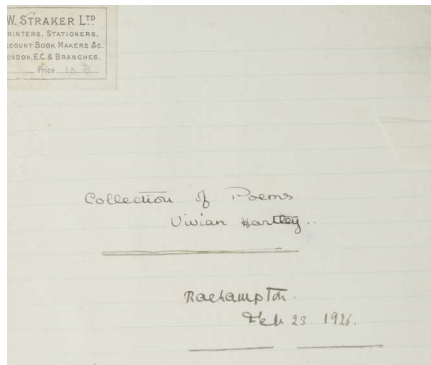 W. STRAKER LTD
RINTERS, STATIONERS,
COUNT BOOK MAKERS &C.
ONDON, E.C. & BRANCHES.
Price
Collection of Poems
Vivian Hartley..
Roehampton.
Feb 23. 1926.